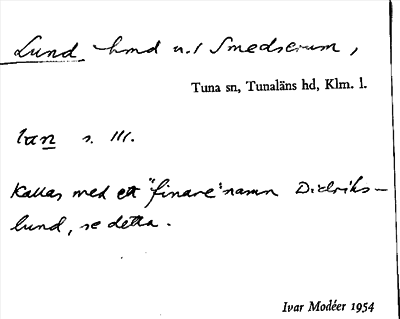 Lund hmd u. / Smedserum,
Tuna sn, Tunaläns hd, Klm. l.
lun s. III.
Kallas med ett "finare" namn Didriks-
lund, se detta.
Ivar Modéer 1954